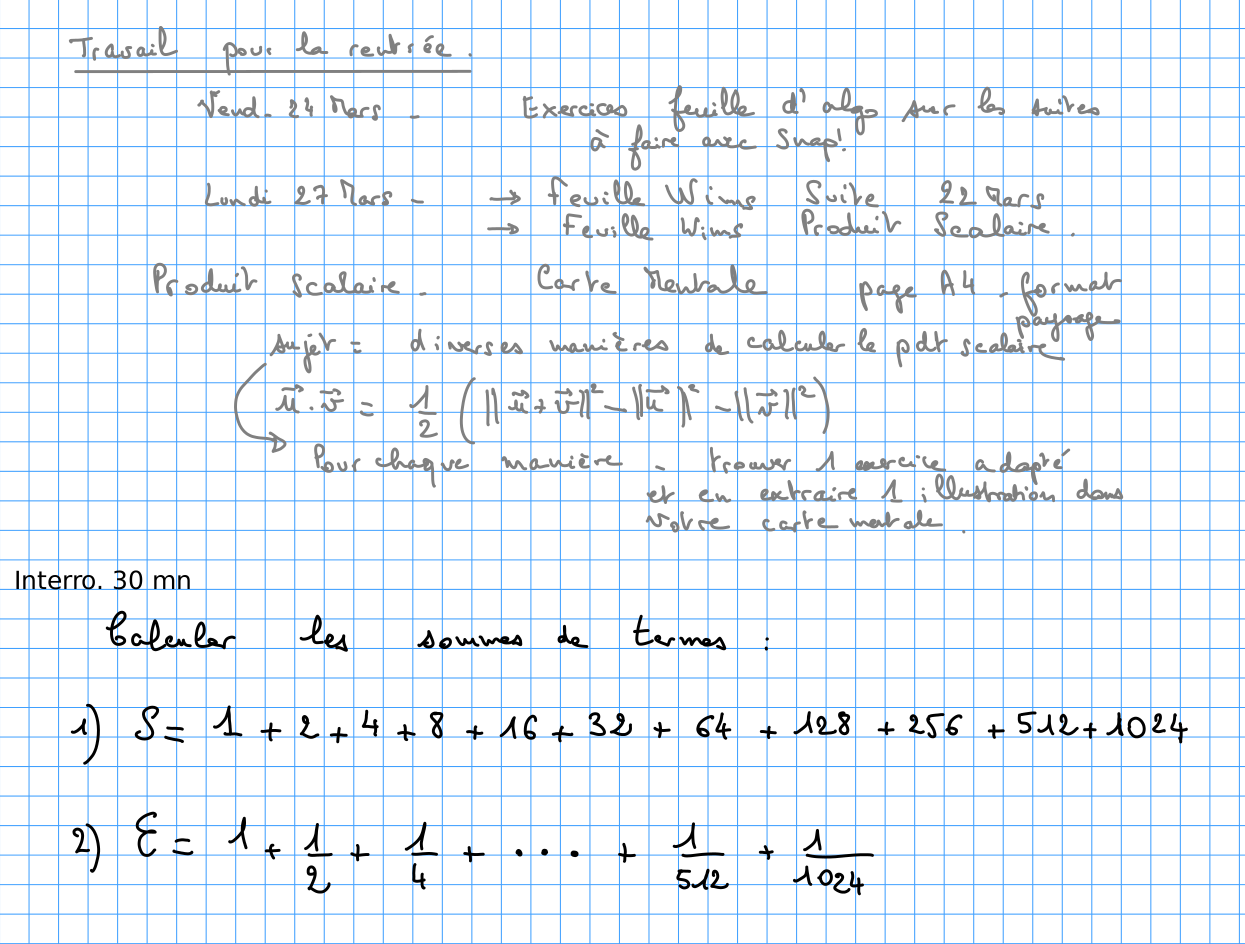 Travail pour la rentrée.
Vend. 24 Mars - Exercices feuille d'algo sur les suites
à faire avec Snap!
Lundi 27 Mars - → Feuille Wims Suite 22 Mars
→ Feuille Wims Produit Scalaire.
Produit scalaire. Carte Mentale page A4 - format
paysage
sujet = diverses manières de calculer le pdt scalaire
\vec{u}.\vec{v} = \frac{1}{2} (||\vec{u}+\vec{v}||² - ||\vec{u}||² - ||\vec{v}||²)
Pour chaque manière - trouver 1 exercice adapté
et en extraire 1 illustration dans
votre carte mentale.
Interro. 30 mn
Calculer les sommes de termes :
1) S = 1 + 2 + 4 + 8 + 16 + 32 + 64 + 128 + 256 + 512 + 1024
2) Ɛ = 1 + \frac{1}{2} + \frac{1}{4} + .... + \frac{1}{512} + \frac{1}{1024}